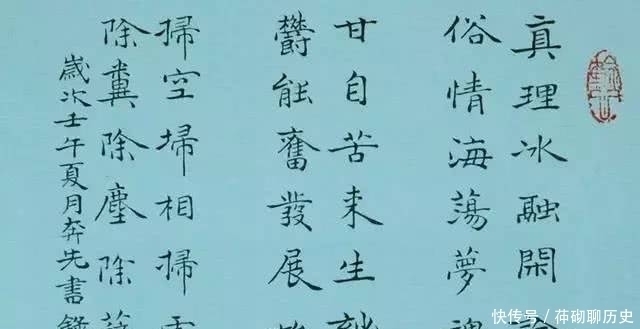 真理冰融閑
俗情海蕩夢
甘自苦来生
鬱能奮發展
掃空埽相掃
除糞除塵除
歲次壬午夏月奔先書
快传号／茚砌聊历史